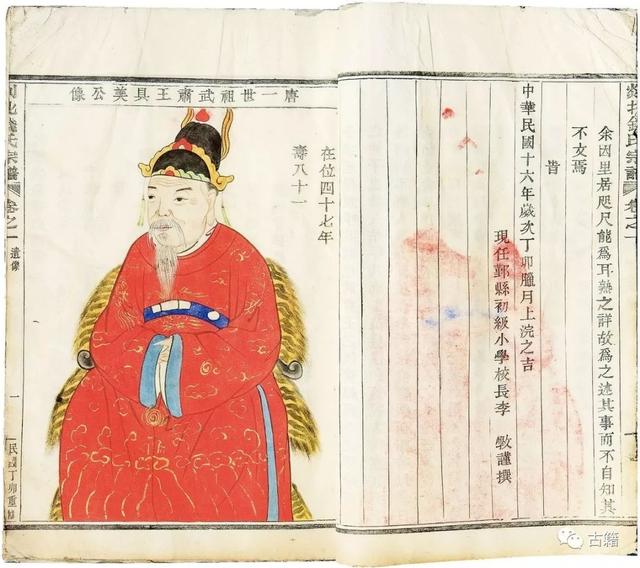 氏宗譜
卷之一
余因里居咫尺能爲耳熟之詳故爲之述其事而不自知其
不文焉
旹
中華民國十六年歲次丁卯臘月上浣之吉
現任鄞縣初級小學校長李 謹撰
唐一世祖武肅王具美公像
在位四十七年
壽八十一
氏宗譜
卷之一
遺像
一
民國丁卯重
古籍